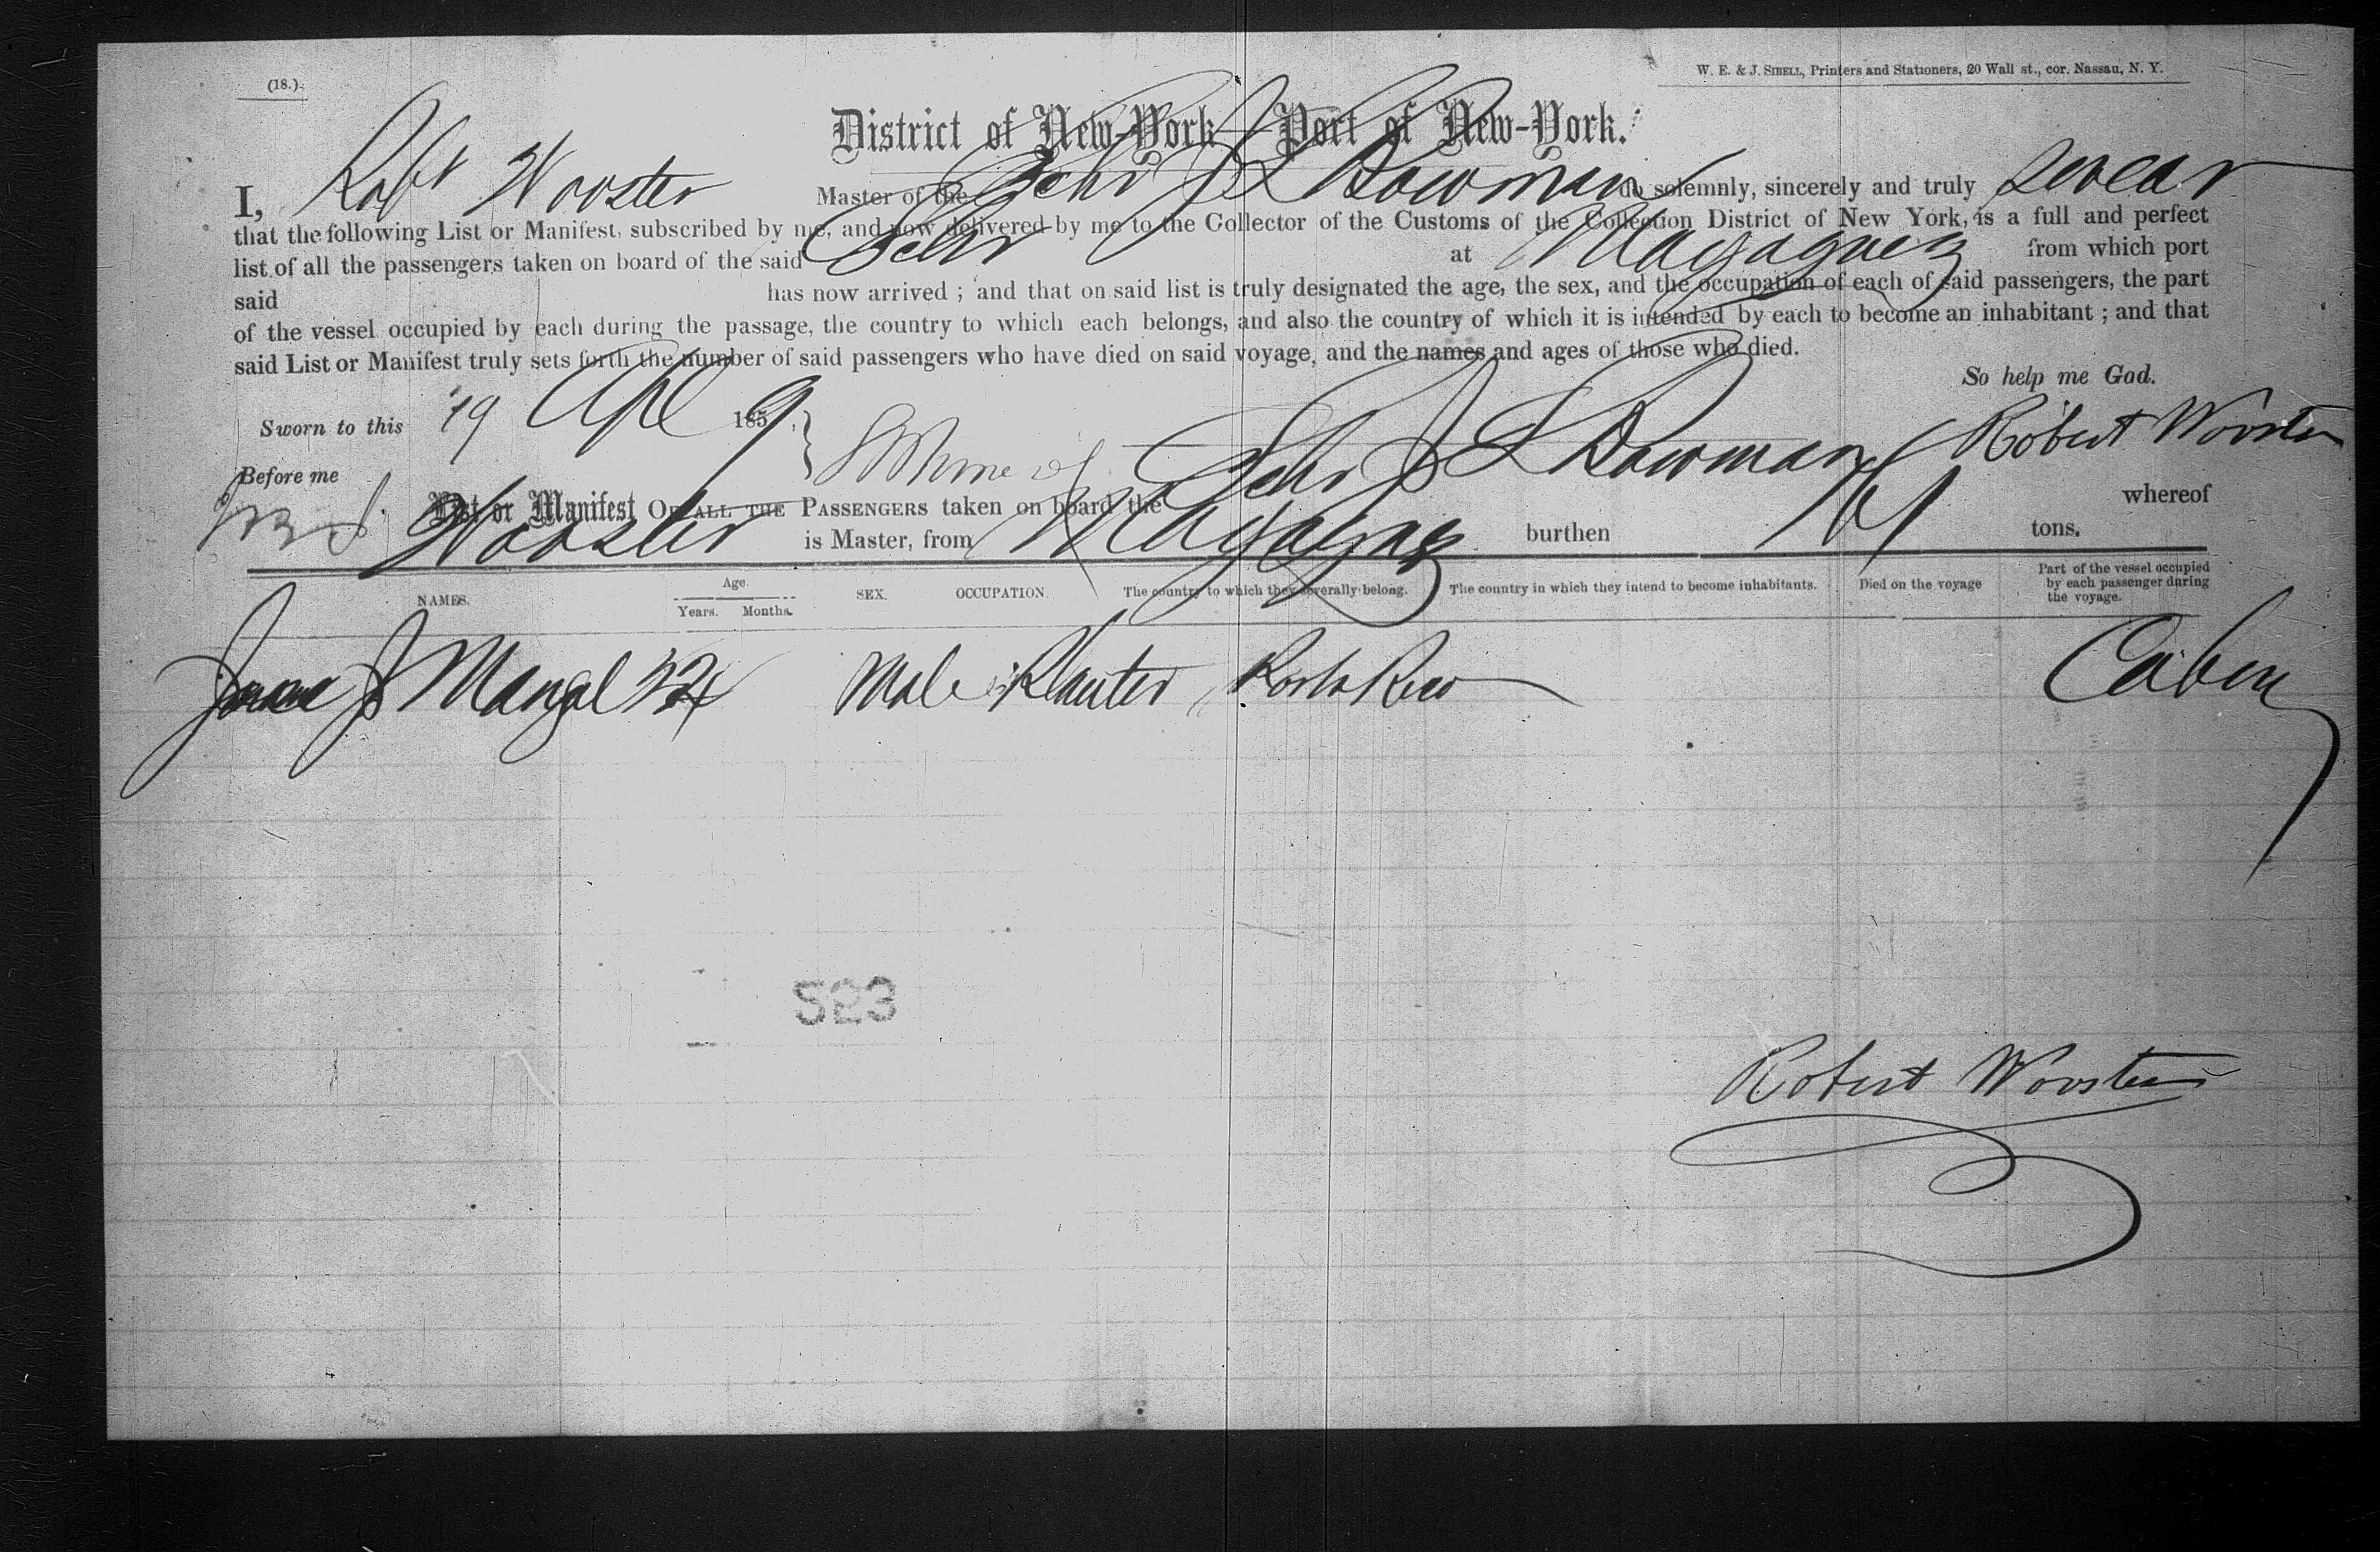 (18.)
W. E. & J. SIBELL, Printers and Stationers, 20 Wall st., cor. Nassau, N. Y.
District of New-York—Port of New-York.
I, Robt Wooster Master of the Schr J L Bowman do solemnly, sincerely and truly swear
that the following List or Manifest, subscribed by me, and now delivered by me to the Collector of the Customs of the Collection District of New York, is a full and perfect
list of all the passengers taken on board of the said Schr at Mayaguez from which port
said has now arrived ; and that on said list is truly designated the age, the sex, and the occupation of each of said passengers, the part
of the vessel occupied by each during the passage, the country to which each belongs, and also the country of which it is intended by each to become an inhabitant ; and that
said List or Manifest truly sets forth the number of said passengers who have died on said voyage, and the names and ages of those who died.
So help me God.
Sworn to this 19 Apl 1859 Robert Wooster
Before me
List or Manifest OF ALL THE PASSENGERS taken on board the Schr J L Bowman whereof
Wooster is Master, from Mayaguez burthen tons.
NAMES. Age. Years. Months. SEX. OCCUPATION. The country to which they severally belong. The country in which they intend to become inhabitants. Died on the voyage Part of the vessel occupied by each passenger during the voyage.
J Mangal Male Planter Porto Rico Cabin
523
Robert Wooster